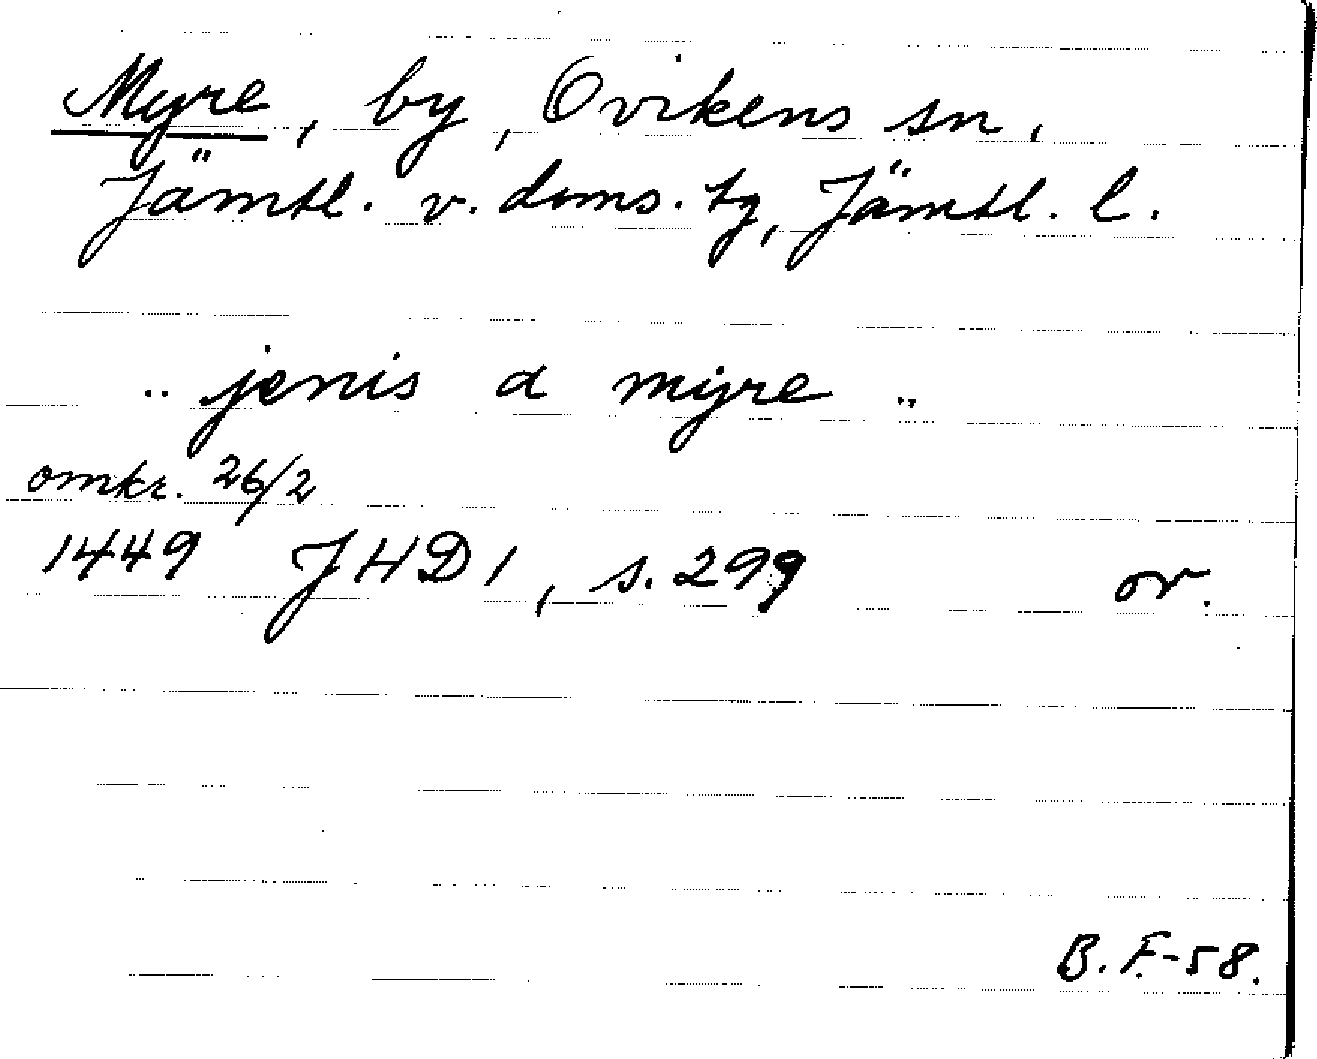 Myre, by, Ovikens sn,
Jämtl. v. doms. tg, Jämtl. l.
.. jenis a myre ..
omkr. 26/2
1449 JHD 1, s. 299 or.
B. F.-58.